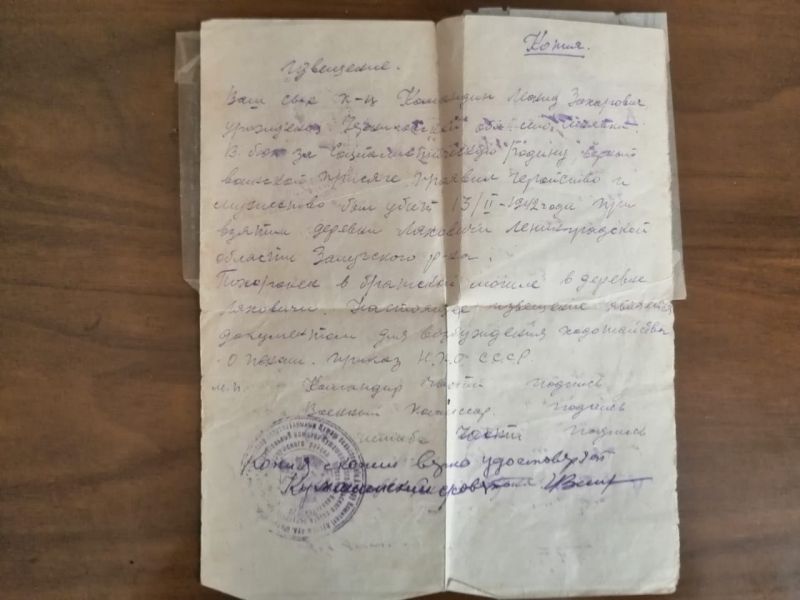 Копия.
Извещение.
Ваш сын к-ц Командин Леонид Захарович,
уроженец обл.
В бою за Социалистическую Родину верный
воинской присяге проявил геройство и
мужество был убит 13/II-1942 года при
взятии деревни Ляховичи Ленинградской
области Залучского р-на.
Похоронен в братской могиле в деревне
Ляховичи. Настоящее извещение является
документом для возбуждения ходотайства
о пенсии. приказ Н.К.О СССР.
м.п. Командир части подпись
Военный комиссар подпись
штаба части подпись
Копия с копии верно удостоверяет